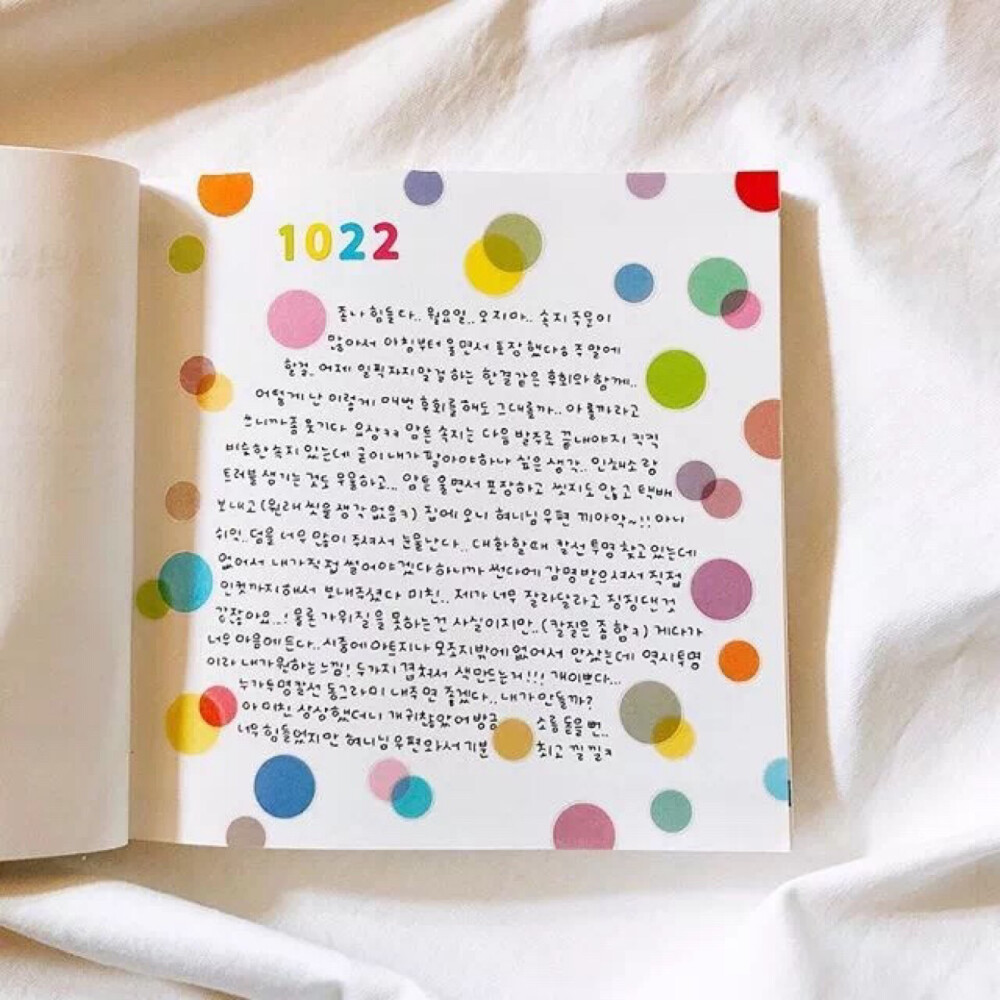 1022
존나 힘들다.. 월요일.. 오지마.. 속지 주문이
많아서 아침부터 울면서 포장했다 주말에
할걸.. 어제 일찍 자지 말걸 하는 한결같은 후회와 함께..
어떻게 난 이렇게 매번 후회를 해도 그대로일까.. 아 를까라고
쓰니까 좀 웃기다 요상ㅋㅋ 암튼 속지는 다음 발주로 끝내야지 킥킥
비슷한 속지 있는데 굳이 내가 팔아야하나 싶은 생각.. 인쇄소랑
트러블 생기는 것도 우울하고... 암튼 울면서 포장하고 씻지도 않고 택배
보내고 (원래 씻을 생각 없음ㅋ) 집에 오니 혀니님 우편 끼아악~!! 아니
쉬잇.. 덤을 너무 많이 주셔서 눈물난다.. 대화할때 칼선 투명 찾고 있는데
없어서 내가 직접 썰어야겠다 하니까 썬다에 감명받으셔서 직접
인컷까지 해서 보내주셨다 미친.. 제가 너무 잘라달라고 징징댄 것
같잖아요..! 물론 가위질을 못하는건 사실이지만..(칼질은 좀 함ㅋ) 게다가
너무 마음에 든다.. 시중에 아트지나 모조지밖에 없어서 안샀는데 역시 투명
이라 내가 원하는 느낌! 두가지 겹쳐서 색 만드는거!!! 개이쁘다...
누가 투명 칼선 동그라미 내주면 좋겠다.. 내가 만들까?
아 미친 상상했더니 개귀찮았어 방금 소름 돋을 뻔..
너무 힘들었지만 혀니님 우편와서 기분 최고 낄낄ㅋ